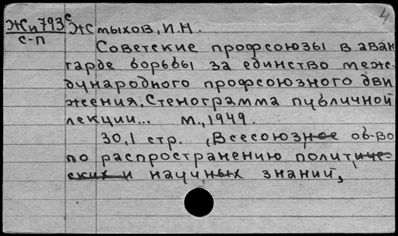 4
Жи793с Жмыхов, И.Н.
с-п
Советские профсоюзы в аван
гарде борьбы за единство меж-
дународного профсоюзного дви
жения. Стенограмма публичной
лекции... м., 1949.
30,1 стр. (Всесоюзное об-во
по распространению политиче-
ских и научных знаний,